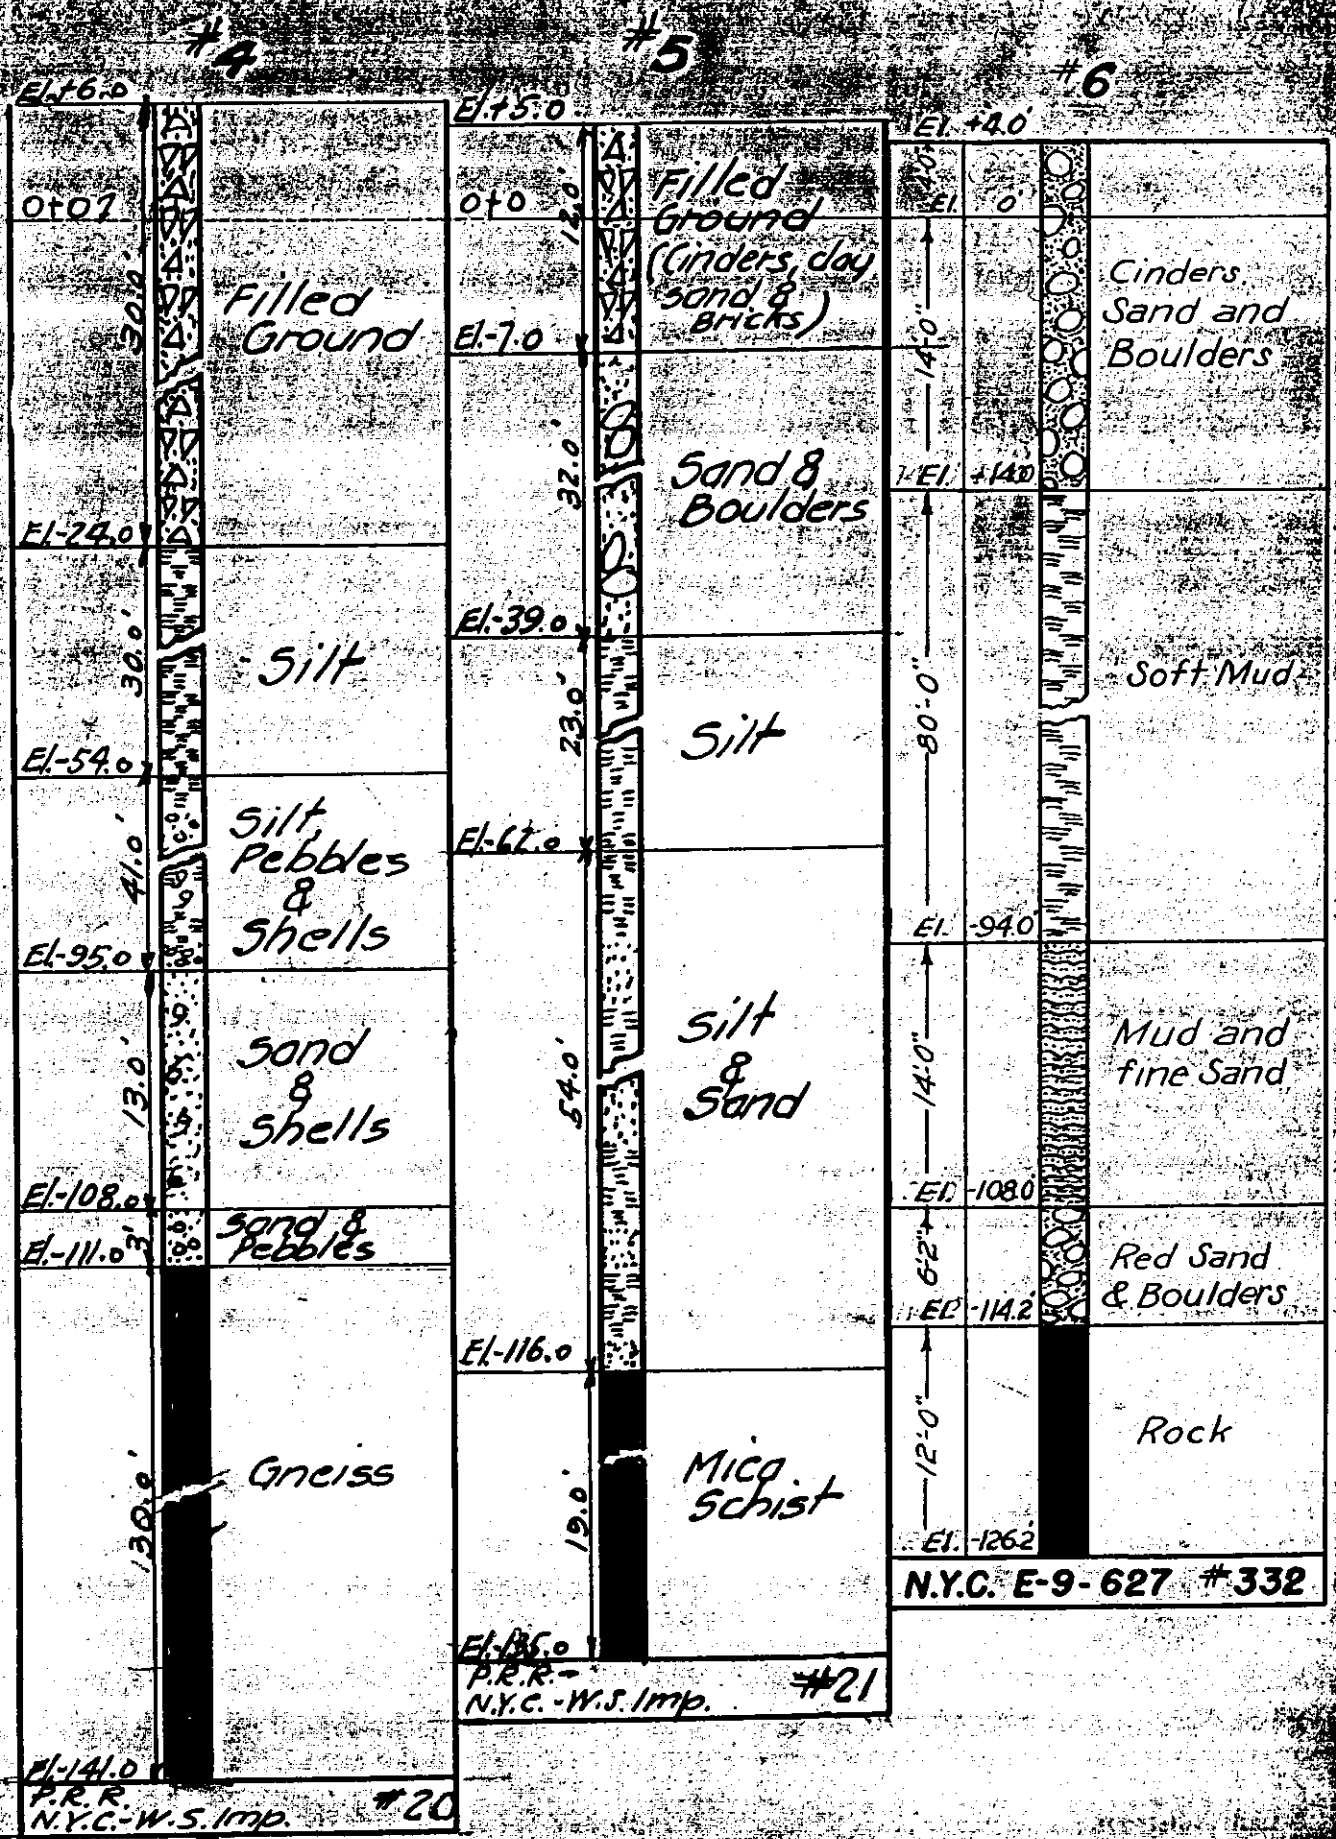 #4
El.+6.0
0+0?
30.0'
Filled
Ground
El.-24.0
30.0'
Silt
El.-54.0
41.0'
Silt,
Pebbles
&
Shells
El.-95.0
13.0'
Sand
&
Shells
El.-108.0
3'
Sand &
Pebbles
El.-111.0
130.0'
Gneiss
El.-141.0
P.R.R.
N.Y.C.-W.S. Imp.
#20
#5
El.+5.0
0+0
12.0'
Filled
Ground
(Cinders, clay
sand &
Bricks)
El.-7.0
32.0'
Sand &
Boulders
El.-39.0
23.0'
Silt
El.-62.0
54.0'
Silt
&
Sand
El.-116.0
19.0'
Mica
Schist
El.-135.0
P.R.R.-
N.Y.C.-W.S. Imp.
#21
#6
El. +4.0'
4'-0"
El. 0'
14'-0"
Cinders,
Sand and
Boulders
El. +14.0
80'-0"
Soft Mud
El. -94.0
14'-0"
Mud and
fine Sand
El. -108.0
6'-2"
Red Sand
& Boulders
El. -114.2
12'-0"
Rock
El. -126.2
N.Y.C. E-9-627 #332